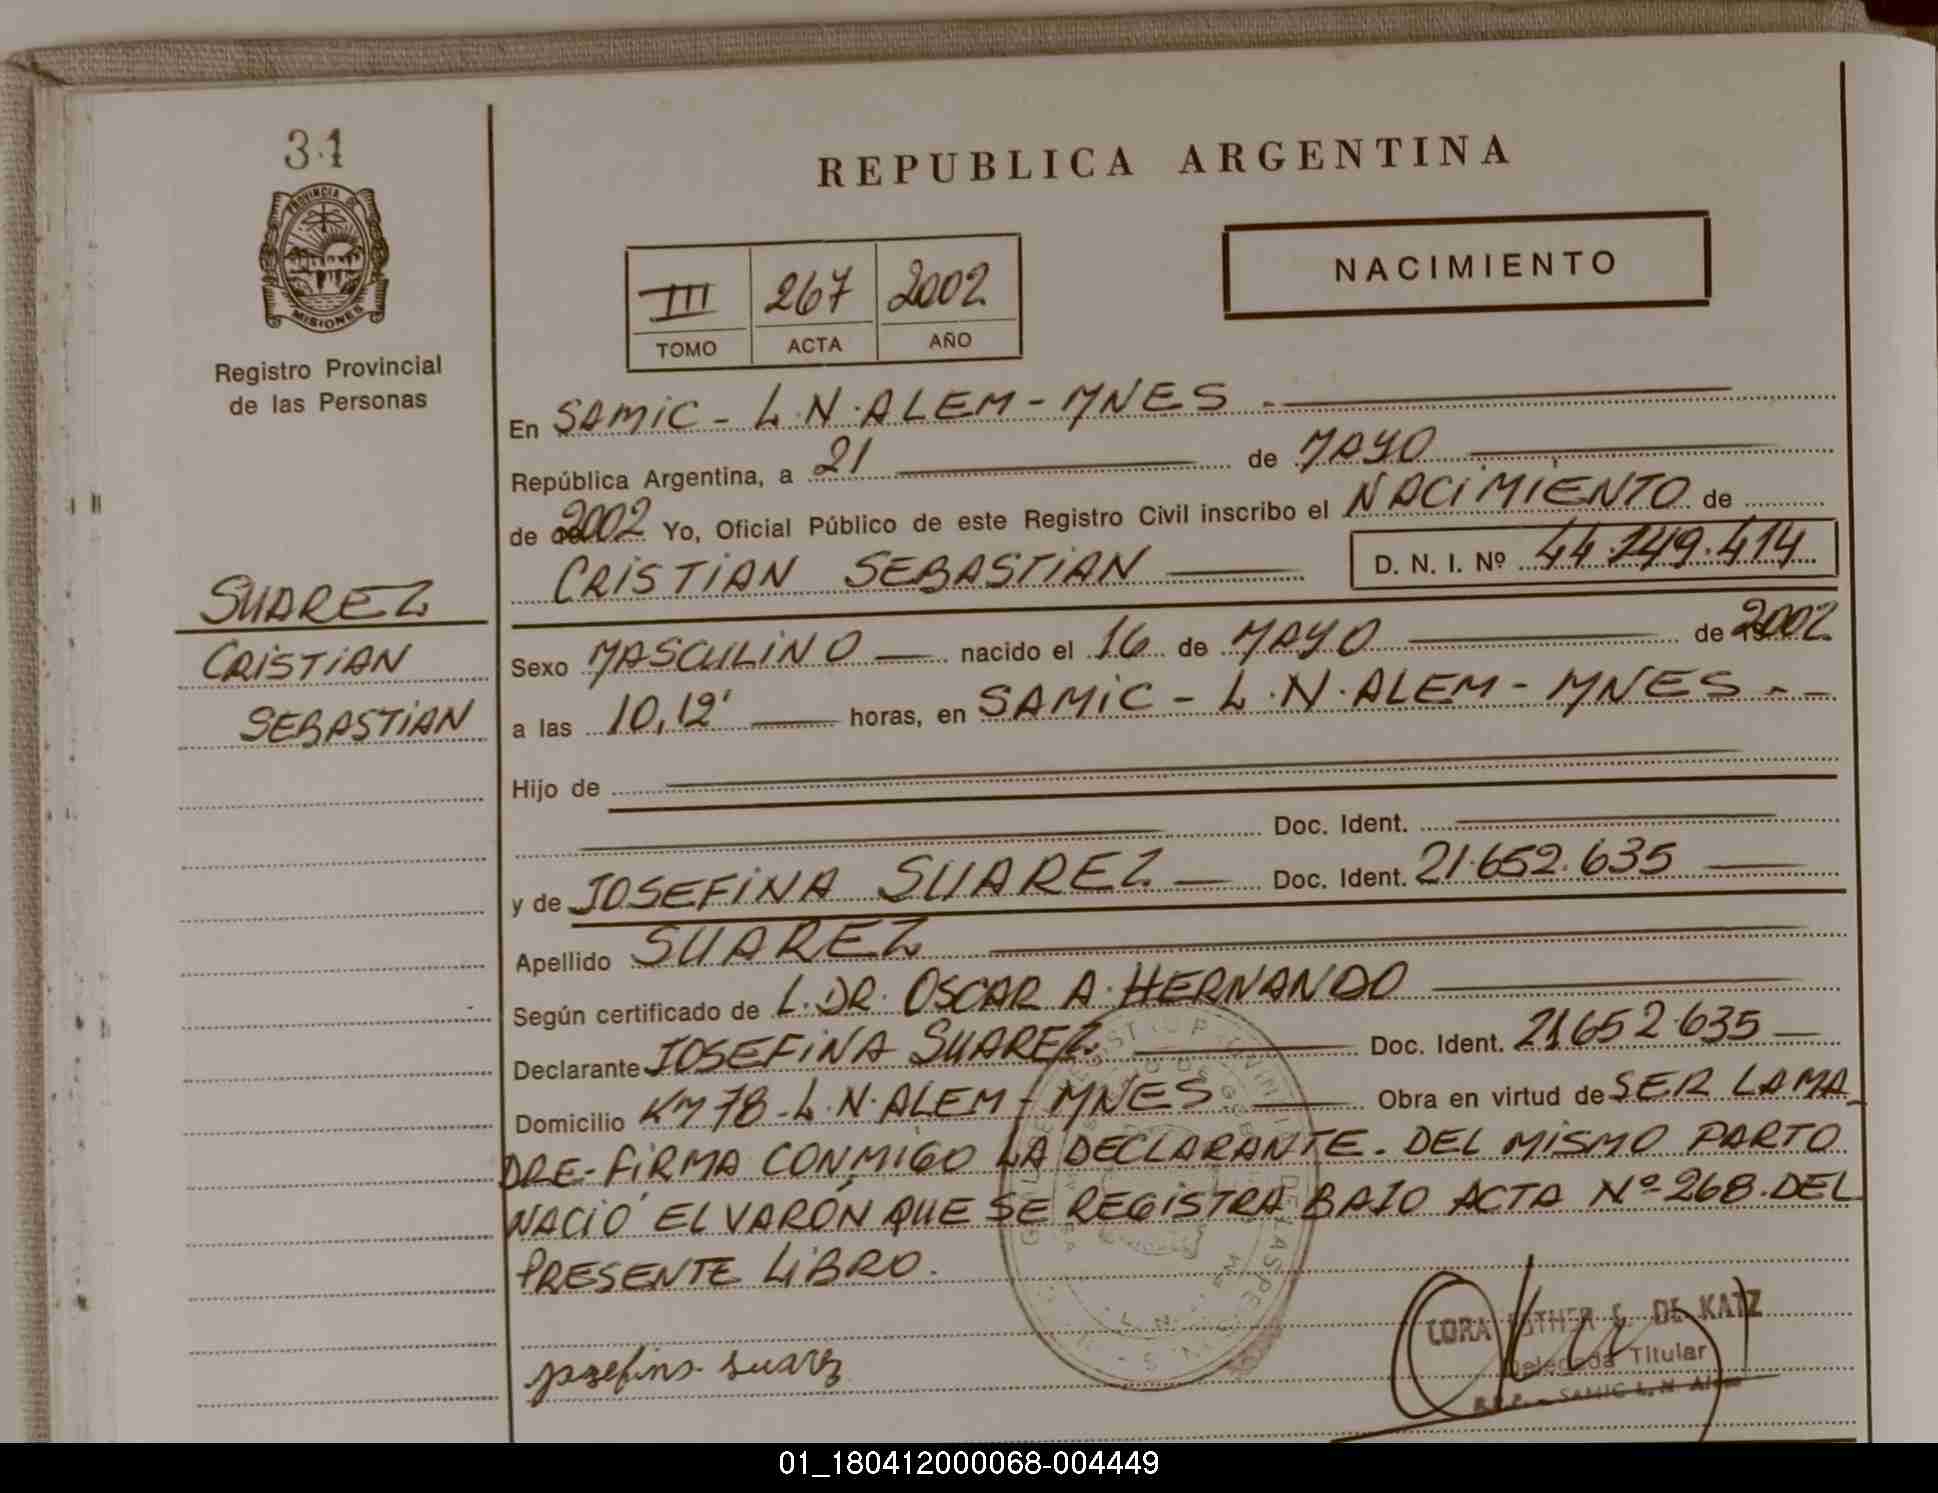 31
PROVINCIA DE
MISIONES
Registro Provincial
de las Personas
SUAREZ
CRISTIAN
SEBASTIAN
REPUBLICA ARGENTINA
NACIMIENTO
III 267 2002
TOMO ACTA AÑO
En SAMIC - L.N.ALEM - MNES -
República Argentina, a 21 de MAYO
de 2002 Yo, Oficial Público de este Registro Civil inscribo el NACIMIENTO de
CRISTIAN SEBASTIAN D. N. I. Nº 44.149.414
Sexo MASCULINO nacido el 16 de MAYO de 2002
a las 10,12' horas, en SAMIC - L.N.ALEM - MNES - -
Hijo de
Doc. Ident.
y de JOSEFINA SUAREZ Doc. Ident. 21.652.635
Apellido SUAREZ
Según certificado de L. DR. OSCAR A. HERNANDO
Declarante JOSEFINA SUAREZ Doc. Ident. 21652.635
Domicilio KM 78 - L.N.ALEM - MNES Obra en virtud de SER LA MA
DRE - FIRMA CONMIGO LA DECLARANTE. DEL MISMO PARTO
NACIÓ EL VARÓN QUE SE REGISTRA BAJO ACTA Nº 268. DEL
PRESENTE LIBRO.
CORA ESTHER DE KATZ
Delegada Titular
SAMIC L. N. Alem
josefina suarez
01_180412000068-004449